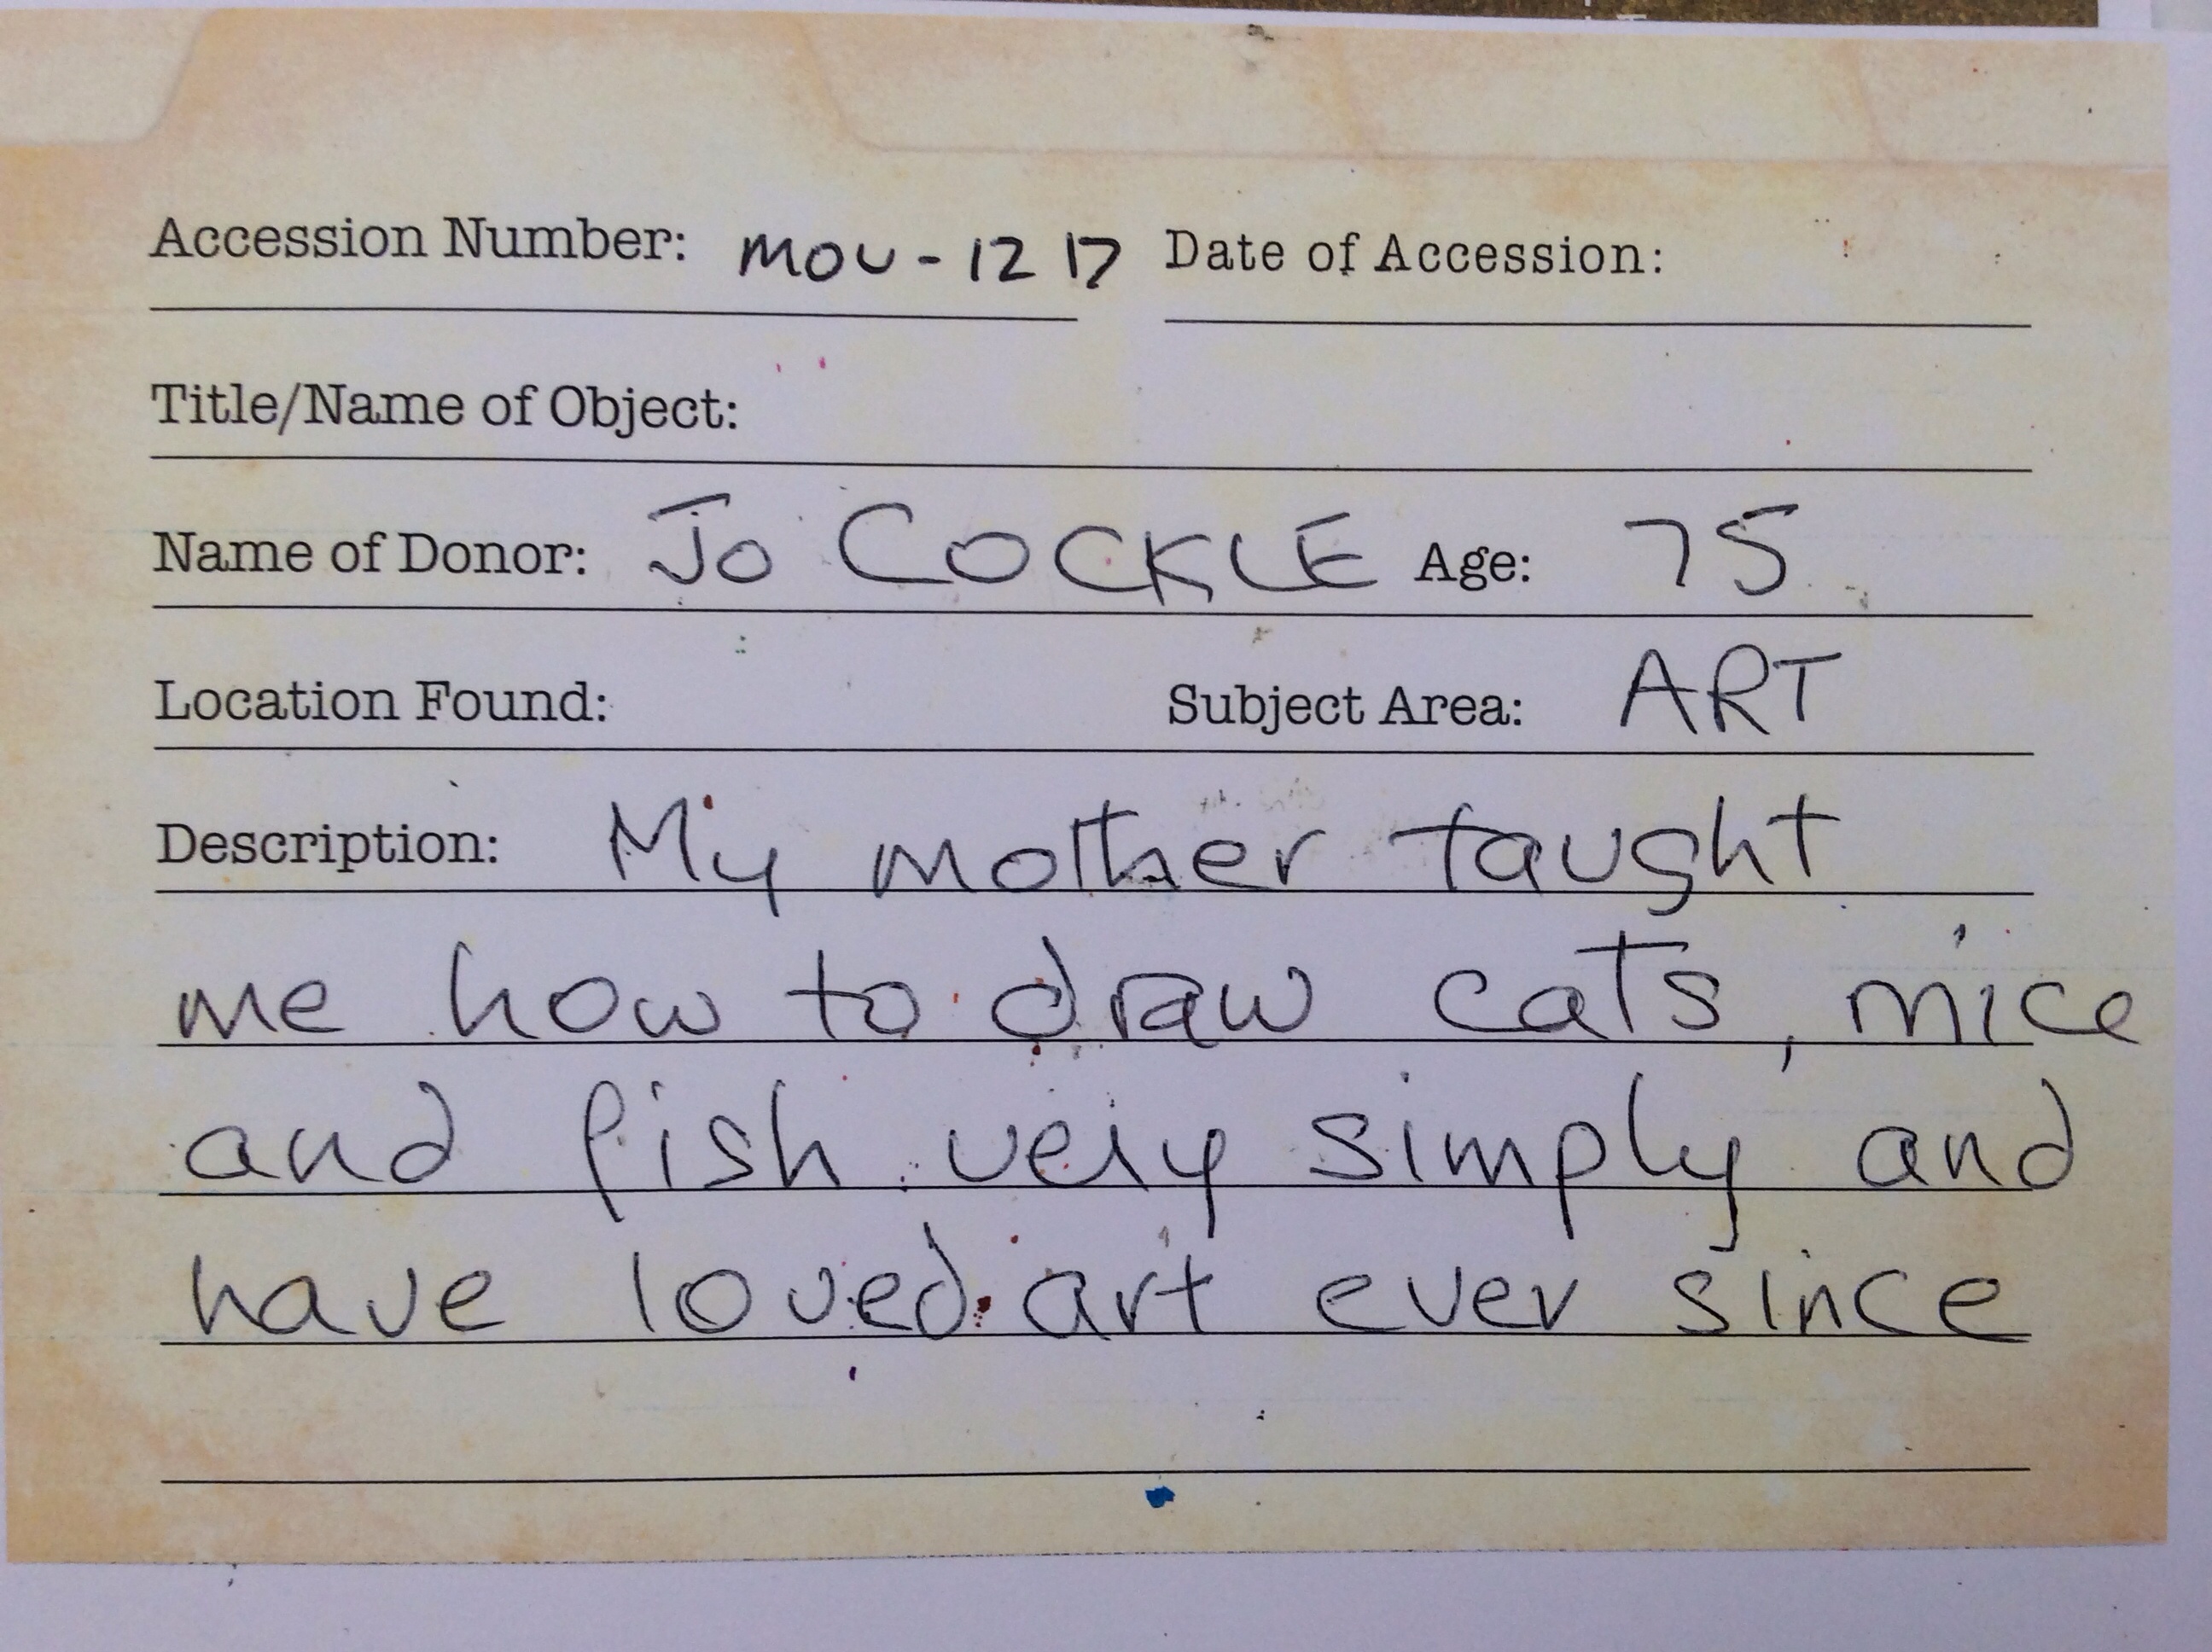 Accession Number: MOU-1217 Date of Accession:
Title/Name of Object:
Name of Donor: Jo COCKLE Age: 75
Location Found: Subject Area: ART
Description: My mother taught
me how to draw cats, mice
and fish very simply and
have loved art ever since